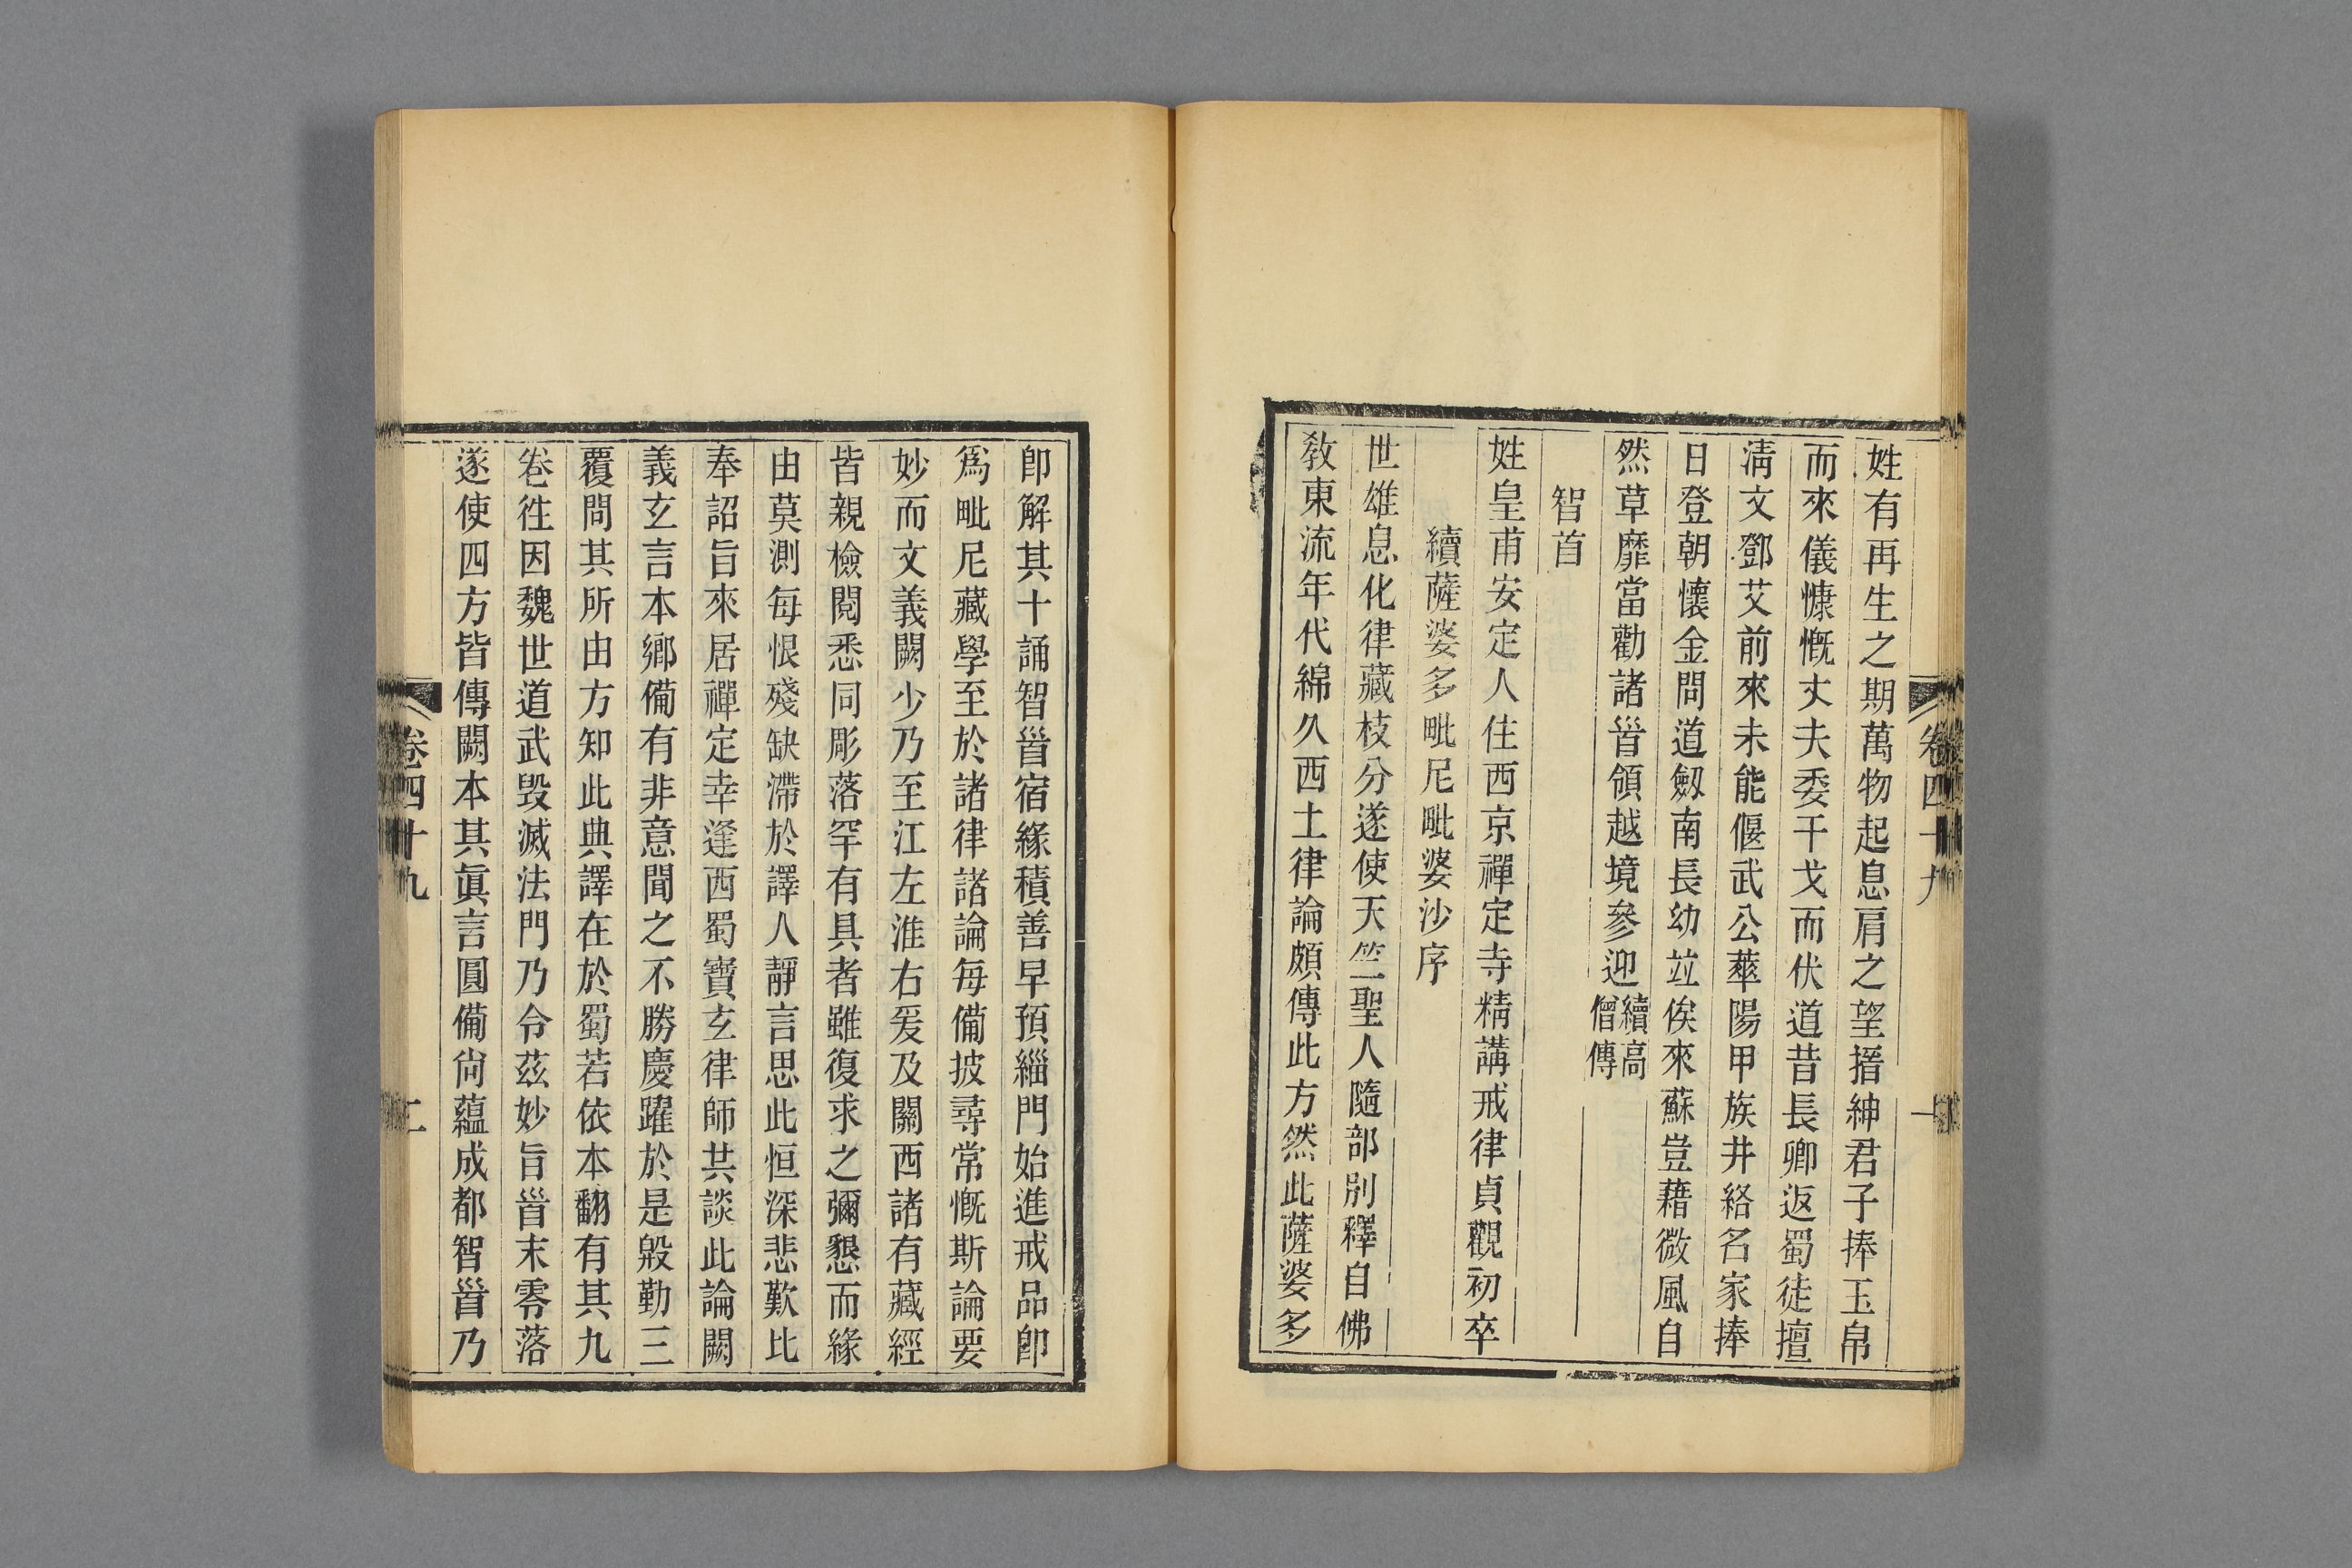 卷四十九
一
姓有再生之期萬物起息肩之望搢紳君子捧玉帛
而來儀慷慨丈夫委干戈而伏道昔長卿返蜀徒擅
淸文鄧艾前來未能偃武公華陽甲族井絡名家捧
日登朝懷金問道劔南長幼竝俟來蘇豈藉微風自
然草靡當勸諸酋領越境參迎續高僧傳
智首
姓皇甫安定人住西京禪定寺精講戒律貞觀初卒
續薩婆多毗尼毗婆沙序
世雄息化律藏枝分遂使天竺聖人隨部別釋自佛
敎東流年代綿久西土律論頗傳此方然此薩婆多
卽解其十誦智首宿緣積善早預緇門始進戒品卽
爲毗尼藏學至於諸律諸論每備披尋常慨斯論要
妙而文義闕少乃至江左淮右爰及關西諸有藏經
皆親檢閱悉同彫落罕有具者雖復求之彌懇而緣
由莫測每恨殘缺滯於譯人靜言思此恒深悲歎比
奉詔旨來居禪定幸逢西蜀寶玄律師共談此論闕
義玄言本鄉備有非意聞之不勝慶躍於是殷勤三
覆問其所由方知此典譯在於蜀若依本翻有其九
卷徃因魏世道武毀滅法門乃令茲妙旨首末零落
遂使四方皆傳闕本其眞言圓備尙蘊成都智首乃
卷四十九
二